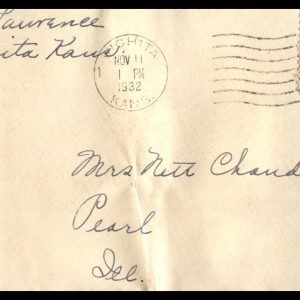 Lawrence
ita Kans.
WICHITA
NOV 11
1 PM
1932
KANS.
Mrs Nett Chand
Pearl
Ill.